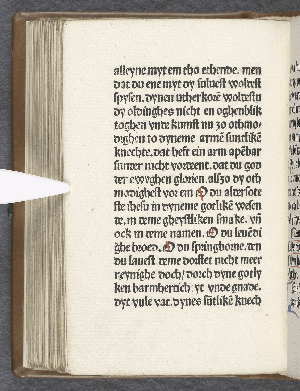 alleyne myt em tho ethende. men
dat du ene myt dy suluest woltest
spysen. dynen utherkorē woltestu
dy oldinghes nicht en oghenblik
toghen vnde kumst nu so othmo-
dighen to dyneme arme sundike
knechte. dat heft ein arm apēbar
sunner nicht vordent. dat du god
der ewyghen glorien. alszo dy oth
modighest vor em O du alder sote
ste ihesu in dyneme gotliken wesen
in eme gheystliken smake. vñ
ock in eme namen. O du leuēdi
ghe broed. O du springborne. den
du lauest eme dorstet nicht meer
reynighe doch dorch dyne gotly
ken barmhertich yt vnde gnade.
dyt vule vat. dynes sūtlikē knech